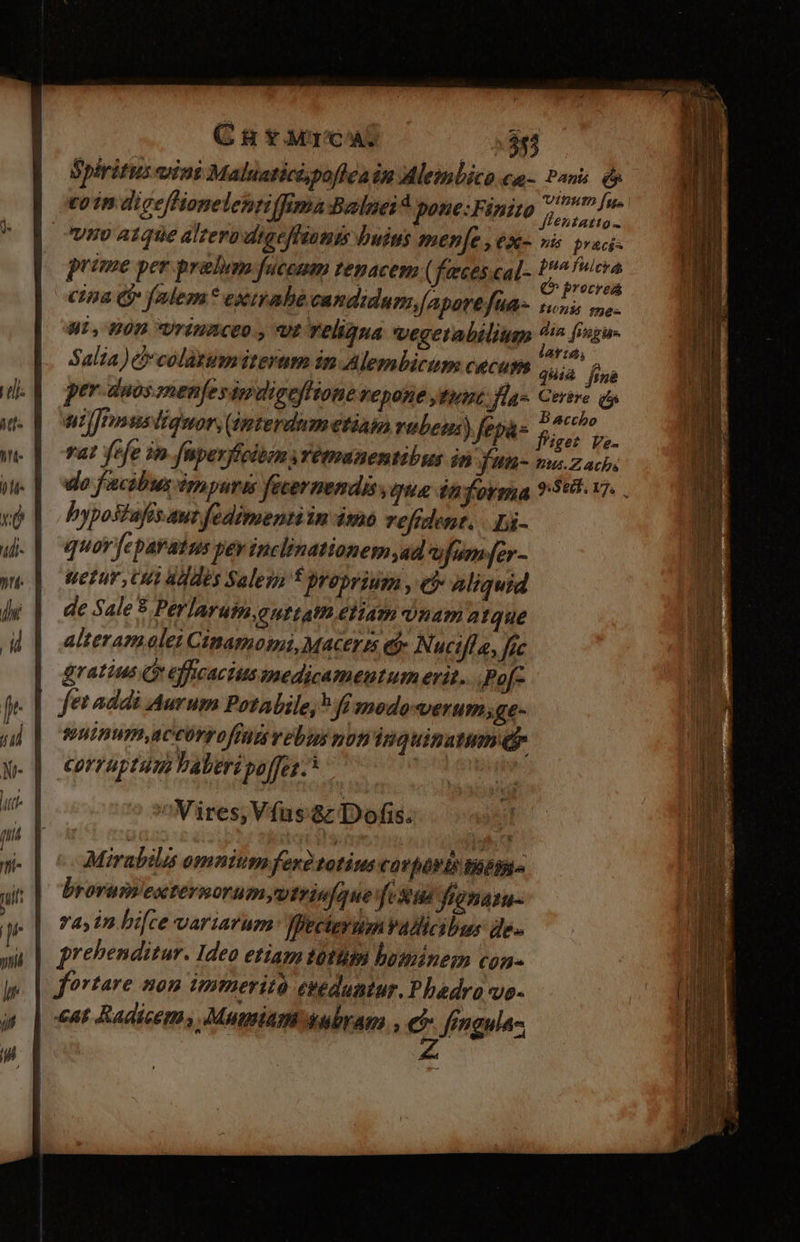 CHYMICA. 353
Spiritus vini Maluatici, postea in Alembico cæ-
co in digestione lentissima Balnei d pone: Finito
vno atque altero digestionis huius mense, ex-
prime per prælum succum tenacem (fæces cal-
cina & salem e extrahe candidum, sapore sua-
ui, non vrinaceo, vt reliqua vegetabilium
Salia) & colatum iterum in Alembicum cæcum
per duos menses in digestione repone, tunc fla-
uissimus liquor, (interdum etiam rubeus) sepa-
rat sese in superficiem, remanentibus in fun-
do facibus impuris secernendis, quæ in forma
hypostasis aut sedimenti in imo resident. Li-
quor separatus per inclinationem, ad vsum ser-
uetur, cui addes Salem f proprium, & aliquid
de Sale g Perlarum, guttam etiam vnam atque
alteram olei Cinamomi, Maceris & Nucistæ, sic
gratius & efficacius medicamentum erit. Pos-
set addi Aurum Potabile, h si modo verum, ge-
nuinum, ac corrosiuis rebus non inquinatum &
corruptum haberi posset. i
Vires, Vsus & Dosis.
Mirabilis omnium ferè totius corporis mem-
brorum externorum, vtriusque sexus signatu-
ra, in hisce variarum specierum radicibus de-
prehenditur. Ideo etiam totum hominem con-
fortare non immeritò creduntur. Phædro vo-
cat Radicem, Mumiam rubram, & singula-
Z
Panis &
vinum su-
stentatio-
nis præci-
pua fulcra
& procrea
tionis me-
dia singu-
laria,
quia sine
Cerere &
Baccho
friget Ve-
nus. Zach.
9. Sect. 17.